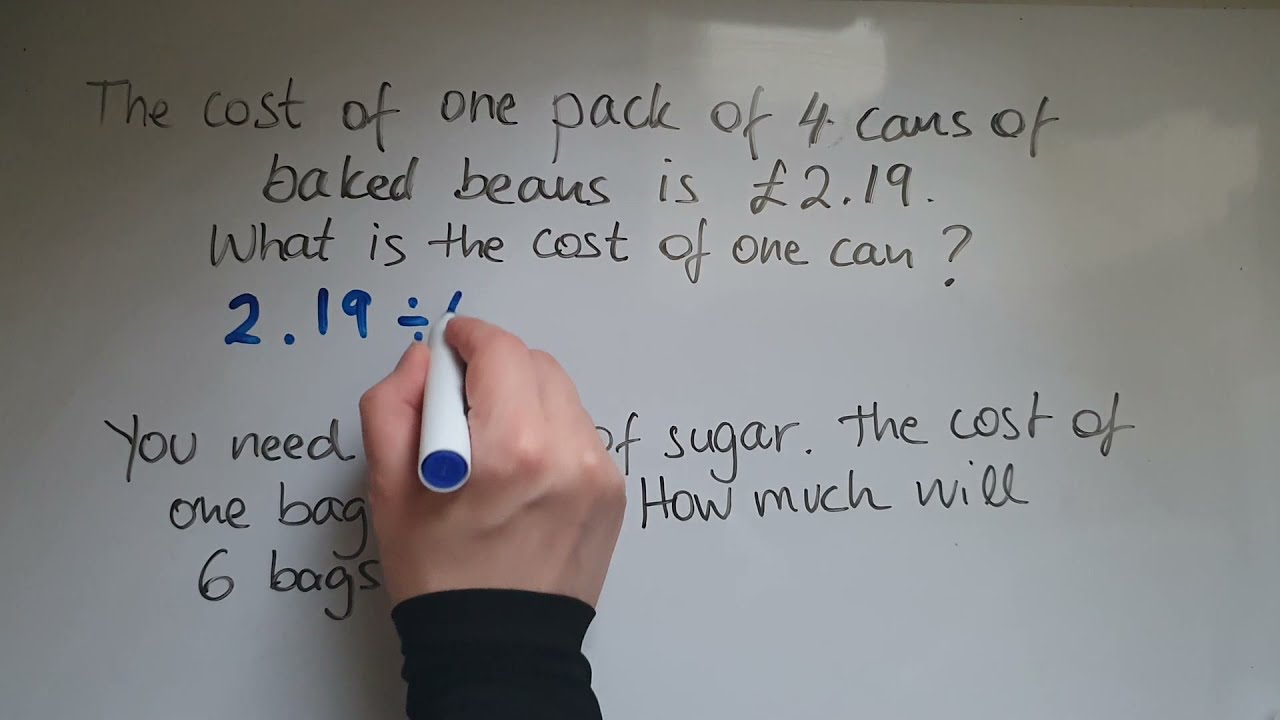 The cost of one pack of 4 cans of
baked beans is £2.19.
What is the cost of one can?
2.19 ÷
You need of sugar. the cost of
one bag How much will
6 bags